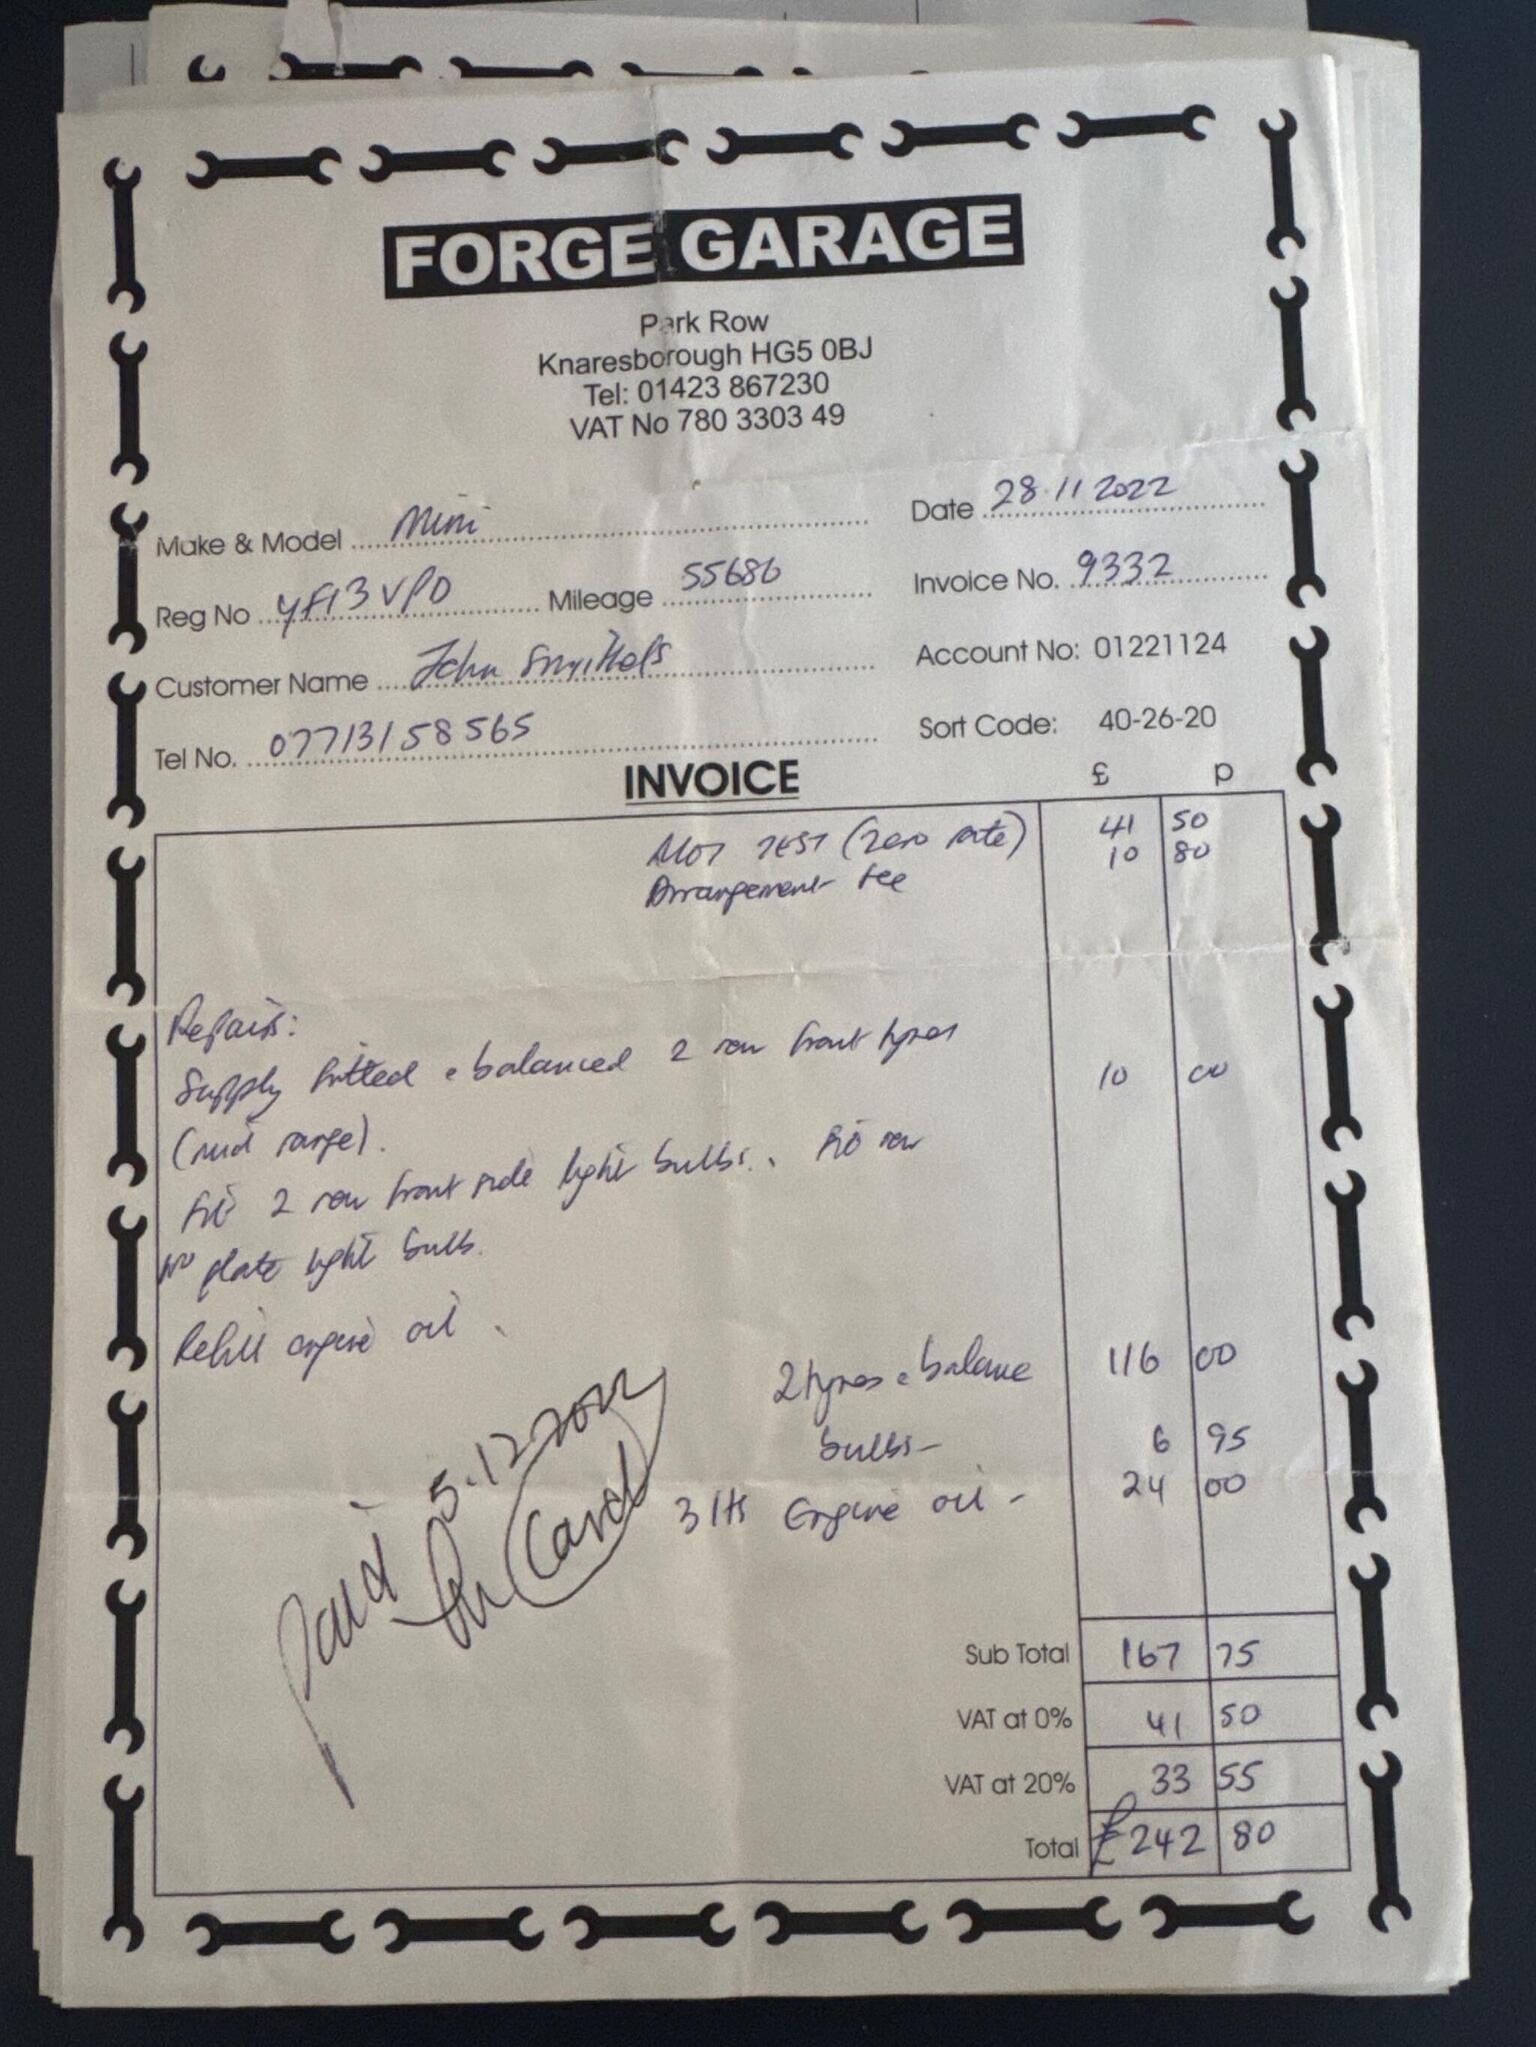 FORGE GARAGE
Park Row
Knaresborough HG5 0BJ
Tel: 01423 867230
VAT No 780 3303 49
Make & Model Mini
Date 28.11 2022
Reg No YF13 VPO Mileage 55686
Invoice No. 9332
Customer Name John
Account No: 01221124
Tel No. 07713158565
Sort Code: 40-26-20
INVOICE
£ p
MOT TEST (Zero rate) 41 50
Arrangement Fee 10 80
Repairs:
Supply fitted & balanced 2 new front tyres 10 00
(mid range).
Fit 2 new front side light bulbs. Fit new
No plate light bulb.
Refill engine oil.
2 tyres & balance 116 00
bulbs- 6 95
3 lts Engine oil - 24 00
Paid 5.12 2022
Card
Sub Total 167 75
VAT at 0% 41 50
VAT at 20% 33 55
Total £242 80